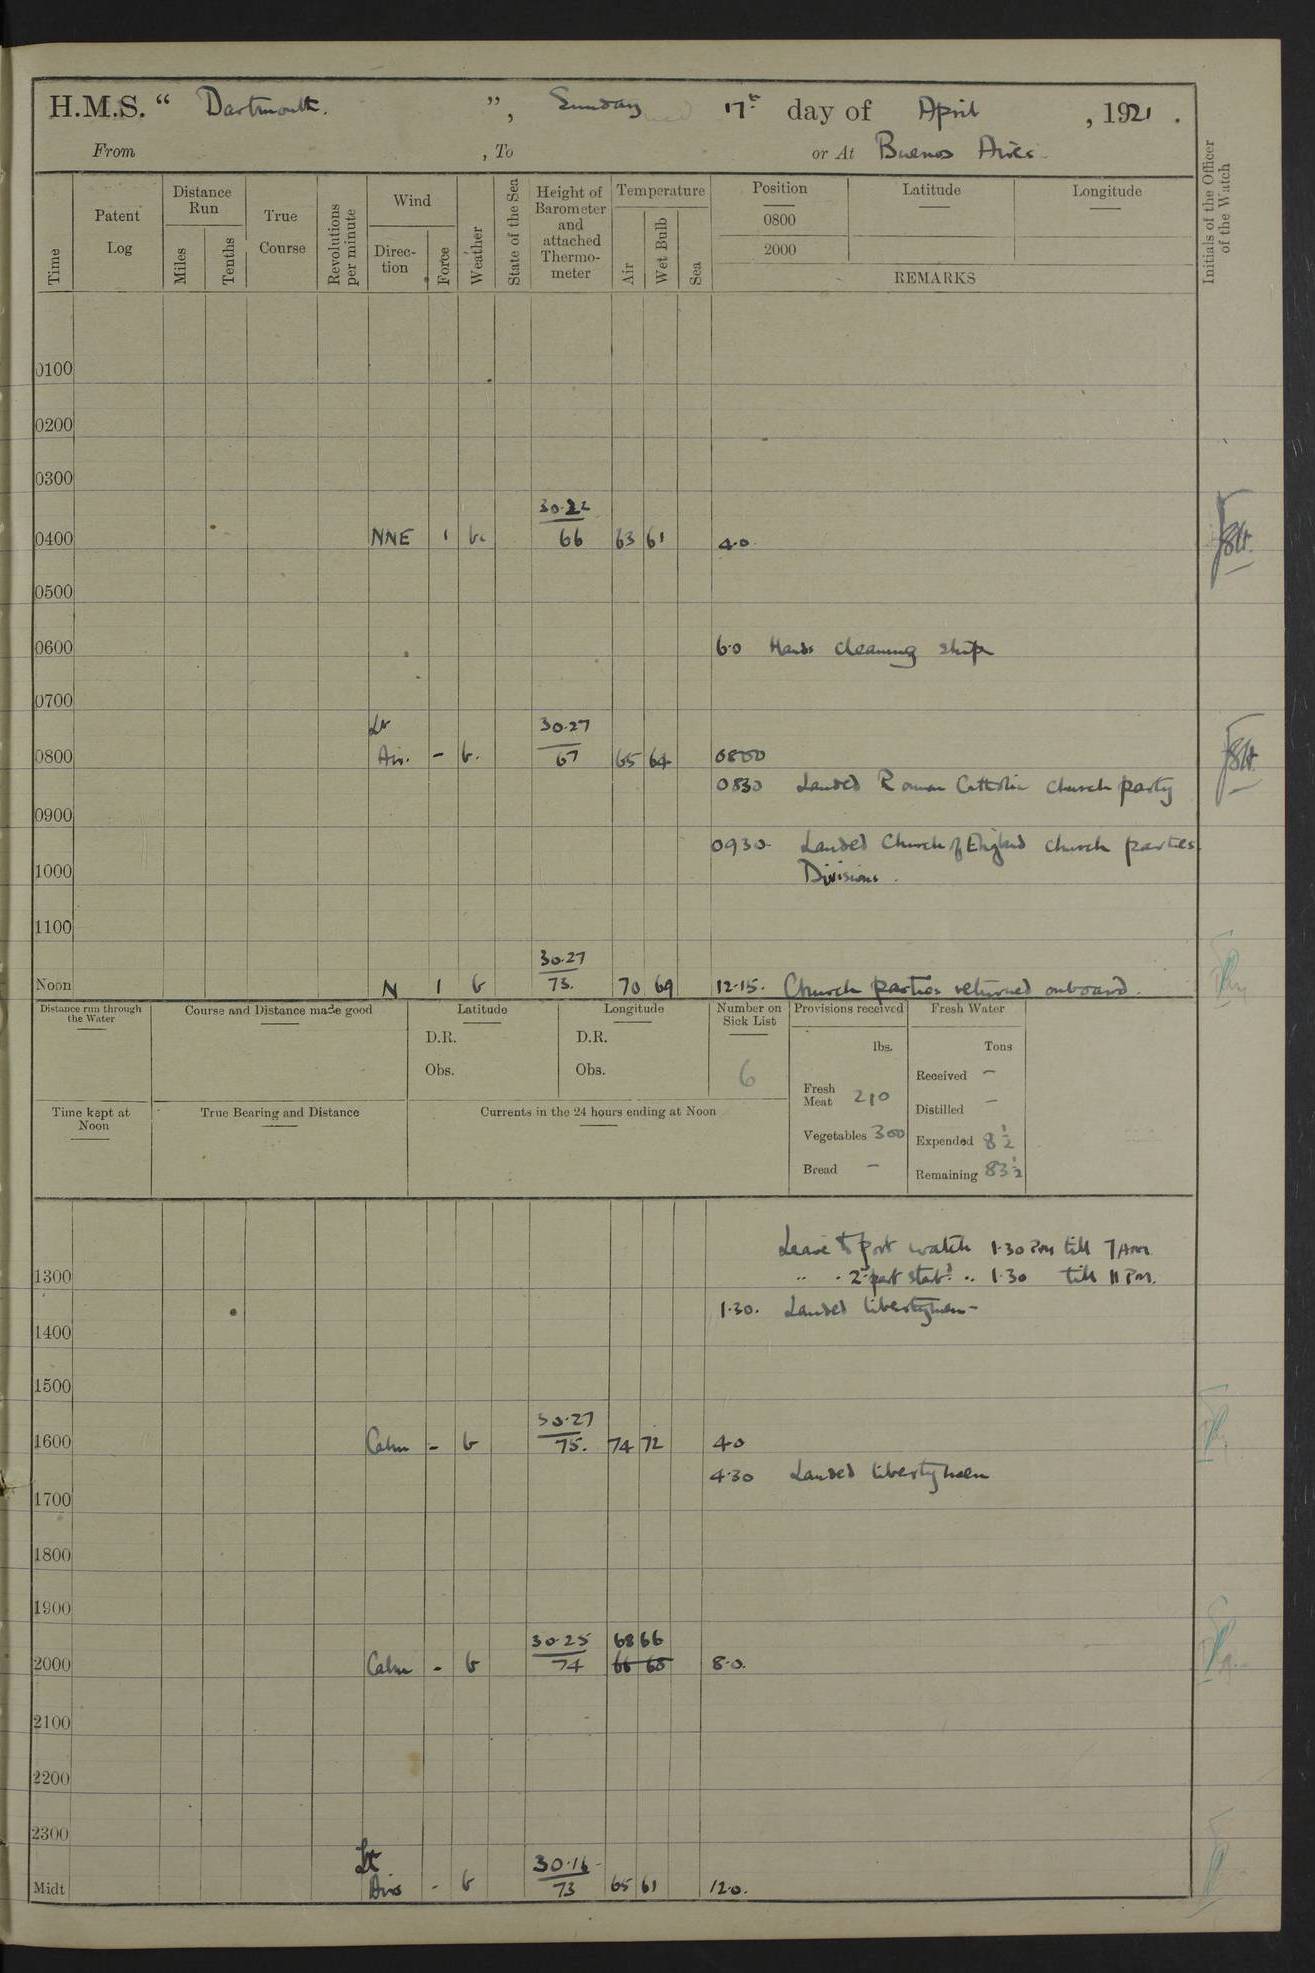 H.M.S. “ Dartmouth. ”, Sunday 17th day of April , 1921 .
From , To or At Buenos Aires.
Time
Patent Log
Distance Run
Miles
Tenths
True Course
Revolutions per minute
Wind
Direc-tion
Force
Weather
State of the Sea
Height of Barometer and attached Thermo-meter
Temperature
Air
Wet Bulb
Sea
Position Latitude Longitude
0800
2000
REMARKS
Initials of the Officer of the Watch
0100
0200
0300
30.22
0400 NNE 1 b. 66 63 61 4.0
0500
0600 6.0 Hands cleaning ship
0700
Lt 30.27
0800 Air. - b. 67 65 64 0800
0830 Landed Roman Catholic church party
0900
0930 Landed Church of England church parties
1000 Divisions.
1100
30.27
Noon N 1 b 73. 70 69 12.15. Church parties returned onboard.
Distance run through the Water
Course and Distance made good
Latitude
D.R.
Obs.
Longitude
D.R.
Obs.
Number on Sick List
6
Provisions received
lbs.
Fresh Meat 210
Vegetables 300
Bread -
Fresh Water
Tons
Received -
Distilled -
Expended 8½
Remaining 83½
Time kept at Noon
True Bearing and Distance
Currents in the 24 hours ending at Noon
Leave to port watch 1.30 PM till 7 AM
1300 " " 2nd part starbd " 1.30 till 11 PM.
1.30. Landed libertymen-
1400
1500
30.27
1600 Calm - b 75. 74 72 4.0
4.30 Landed libertymen
1700
1800
1900
30.25 68 66
2000 Calm - b 74 66 65 8.0.
2100
2200
2300
Lt 30.16
Midt Airs - b 73 65 61 12.0.